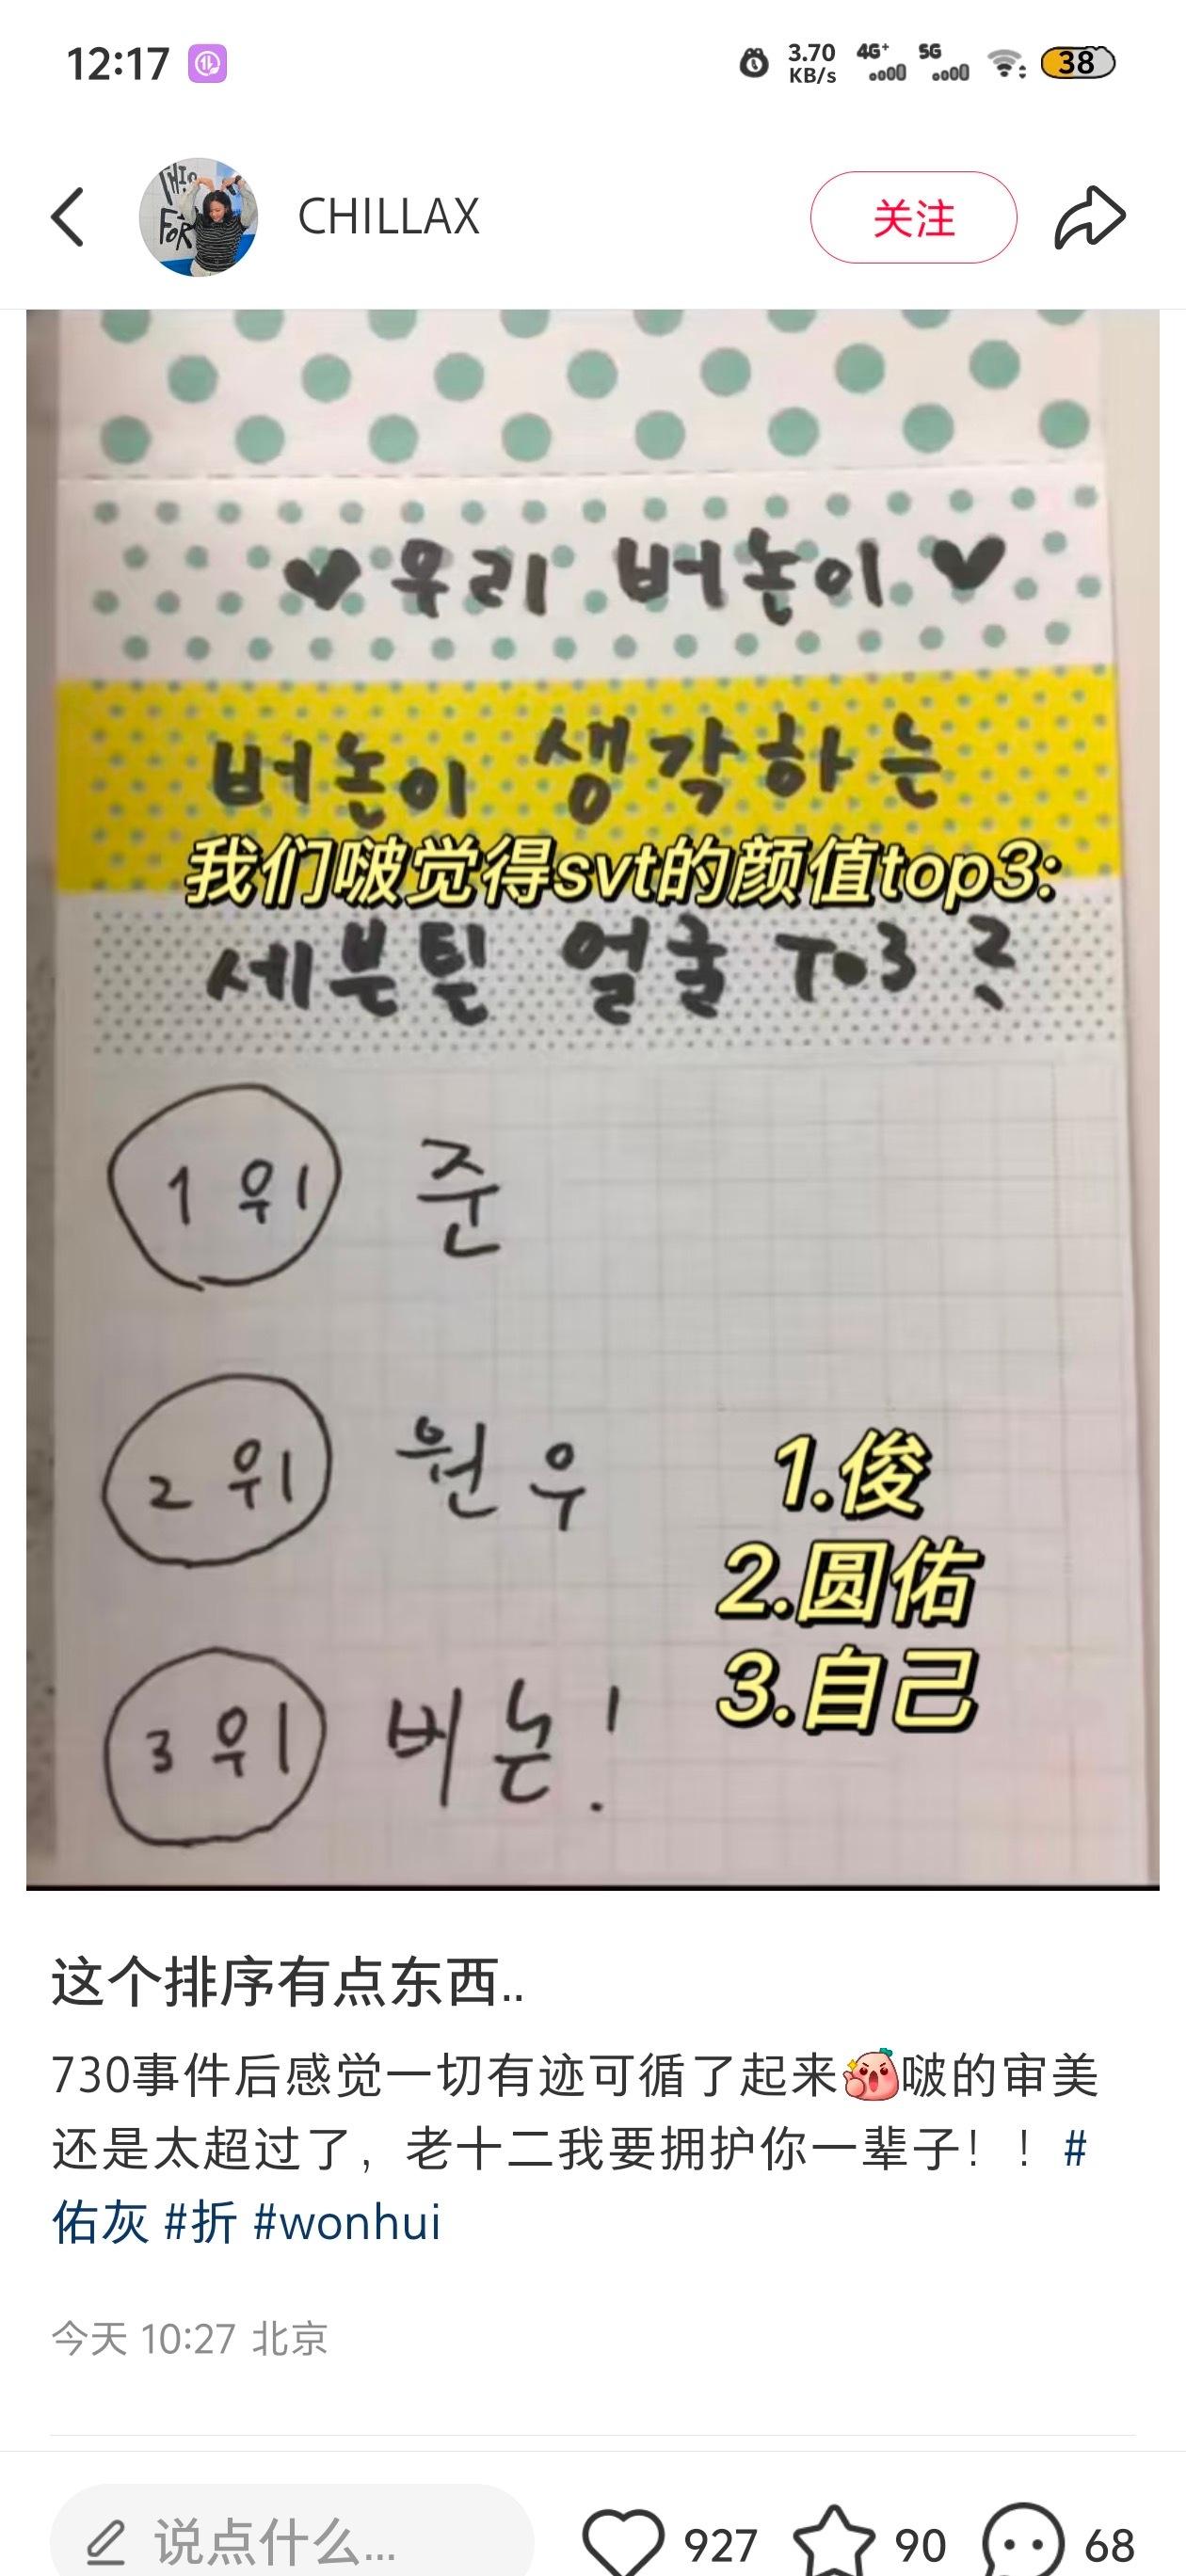 12:17
3.70 KB/s
4G+
5G
38
CHILLAX
关注
THIS
FOR
♥우리 버논이♥
버논이 생각하는
我们啵觉得svt的颜值top3:
세븐틴 얼굴 To3?
1위 준
2위 원우
3위 버논!
1.俊
2.圆佑
3.自己
这个排序有点东西..
730事件后感觉一切有迹可循了起来啵的审美
还是太超过了，老十二我要拥护你一辈子！！#
佑灰 #折 #wonhui
今天 10:27 北京
说点什么...
927
90
68